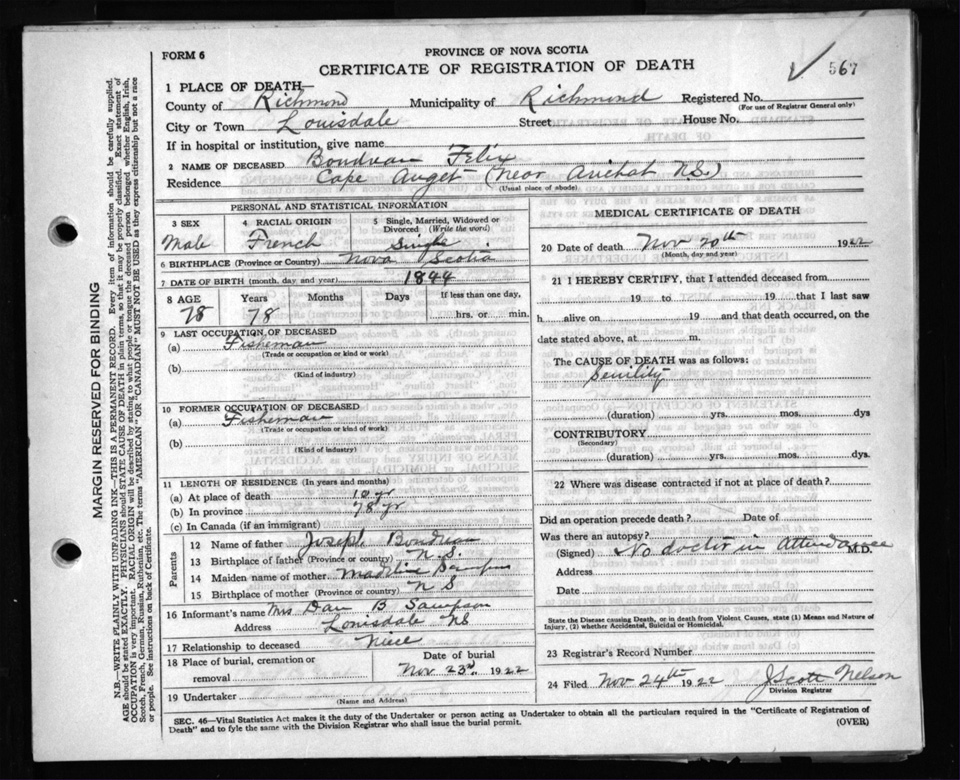 FORM 6
PROVINCE OF NOVA SCOTIA
CERTIFICATE OF REGISTRATION OF DEATH
567
1 PLACE OF DEATH
County of Richmond Municipality of Richmond Registered No.
(For use of Registrar General only)
City or Town Louisdale Street House No.
If in hospital or institution, give name
2 NAME OF DECEASED Boudreau Felix
Residence Cape Auget (near Arichat N.S.)
(Usual place of abode)
PERSONAL AND STATISTICAL INFORMATION
3 SEX
Male
4 RACIAL ORIGIN
French
5 Single, Married, Widowed or Divorced (Write the word)
Single
6 BIRTHPLACE (Province or Country) Nova Scotia
7 DATE OF BIRTH (month, day, and year) 1844
8 AGE Years Months Days If less than one day,
78 78 hrs. or min.
9 LAST OCCUPATION OF DECEASED
(a) Fisheman
(Trade or occupation or kind or work)
(b)
(Kind of industry)
10 FORMER OCCUPATION OF DECEASED
(a) Fisheman
(Trade or occupation or kind or work)
(b)
(Kind of industry)
11 LENGTH OF RESIDENCE (In years and months)
(a) At place of death 10 yr
(b) In province 78 yr
(c) In Canada (if an immigrant)
Parents
12 Name of father Joseph Boudreau
13 Birthplace of father (Province or country) N.S.
14 Maiden name of mother
15 Birthplace of mother (Province or country) N S
16 Informant's name Mrs Dan B Sampson
Address Louisdale NS
17 Relationship to deceased Niece
18 Place of burial, cremation or removal
Date of burial
Nov 23rd 1922
19 Undertaker
(Name and Address)
MEDICAL CERTIFICATE OF DEATH
20 Date of death Nov 20th 1922
(Month, day and year)
21 I HEREBY CERTIFY, that I attended deceased from
19 to 19 that I last saw
h alive on 19 and that death occurred, on the
date stated above, at m.
The CAUSE OF DEATH was as follows:
Senility
(duration) yrs. mos. dys
CONTRIBUTORY
(Secondary)
(duration) yrs. mos. dys
22 Where was disease contracted if not at place of death?
Did an operation precede death? Date of
Was there an autopsy?
(Signed) No doctor in Attendance M.D.
Address
Date
State the Disease causing Death, or in death from Violent Causes, state (1) Means and Nature of
Injury, (2) whether Accidental, Suicidal or Homicidal.
23 Registrar's Record Number
24 Filed Nov 24th 1922 J Scott Nelson
Division Registrar
SEC. 46—Vital Statistics Act makes it the duty of the Undertaker or person acting as Undertaker to obtain all the particulars required in the "Certificate of Registration of
Death" and to fyle the same with the Division Registrar who shall issue the burial permit.
(OVER)
MARGIN RESERVED FOR BINDING
N.B.—WRITE PLAINLY WITH UNFADING INK—THIS IS A PERMANENT RECORD. Every item of information should be carefully supplied.
AGE should be stated EXACTLY. PHYSICIANS should STATE CAUSE OF DEATH in plain terms, so that it may be properly classified. Exact statement of
OCCUPATION is very important. RACIAL ORIGIN will be described by stating to what people or tongue the deceased person belonged whether English, Irish,
Scotch, French, German, Russian, Ruthenian, etc. The terms "AMERICAN" OR "CANADIAN" MUST NOT BE USED as they express citizenship but not a race
or people. See instructions on back of Certificate.